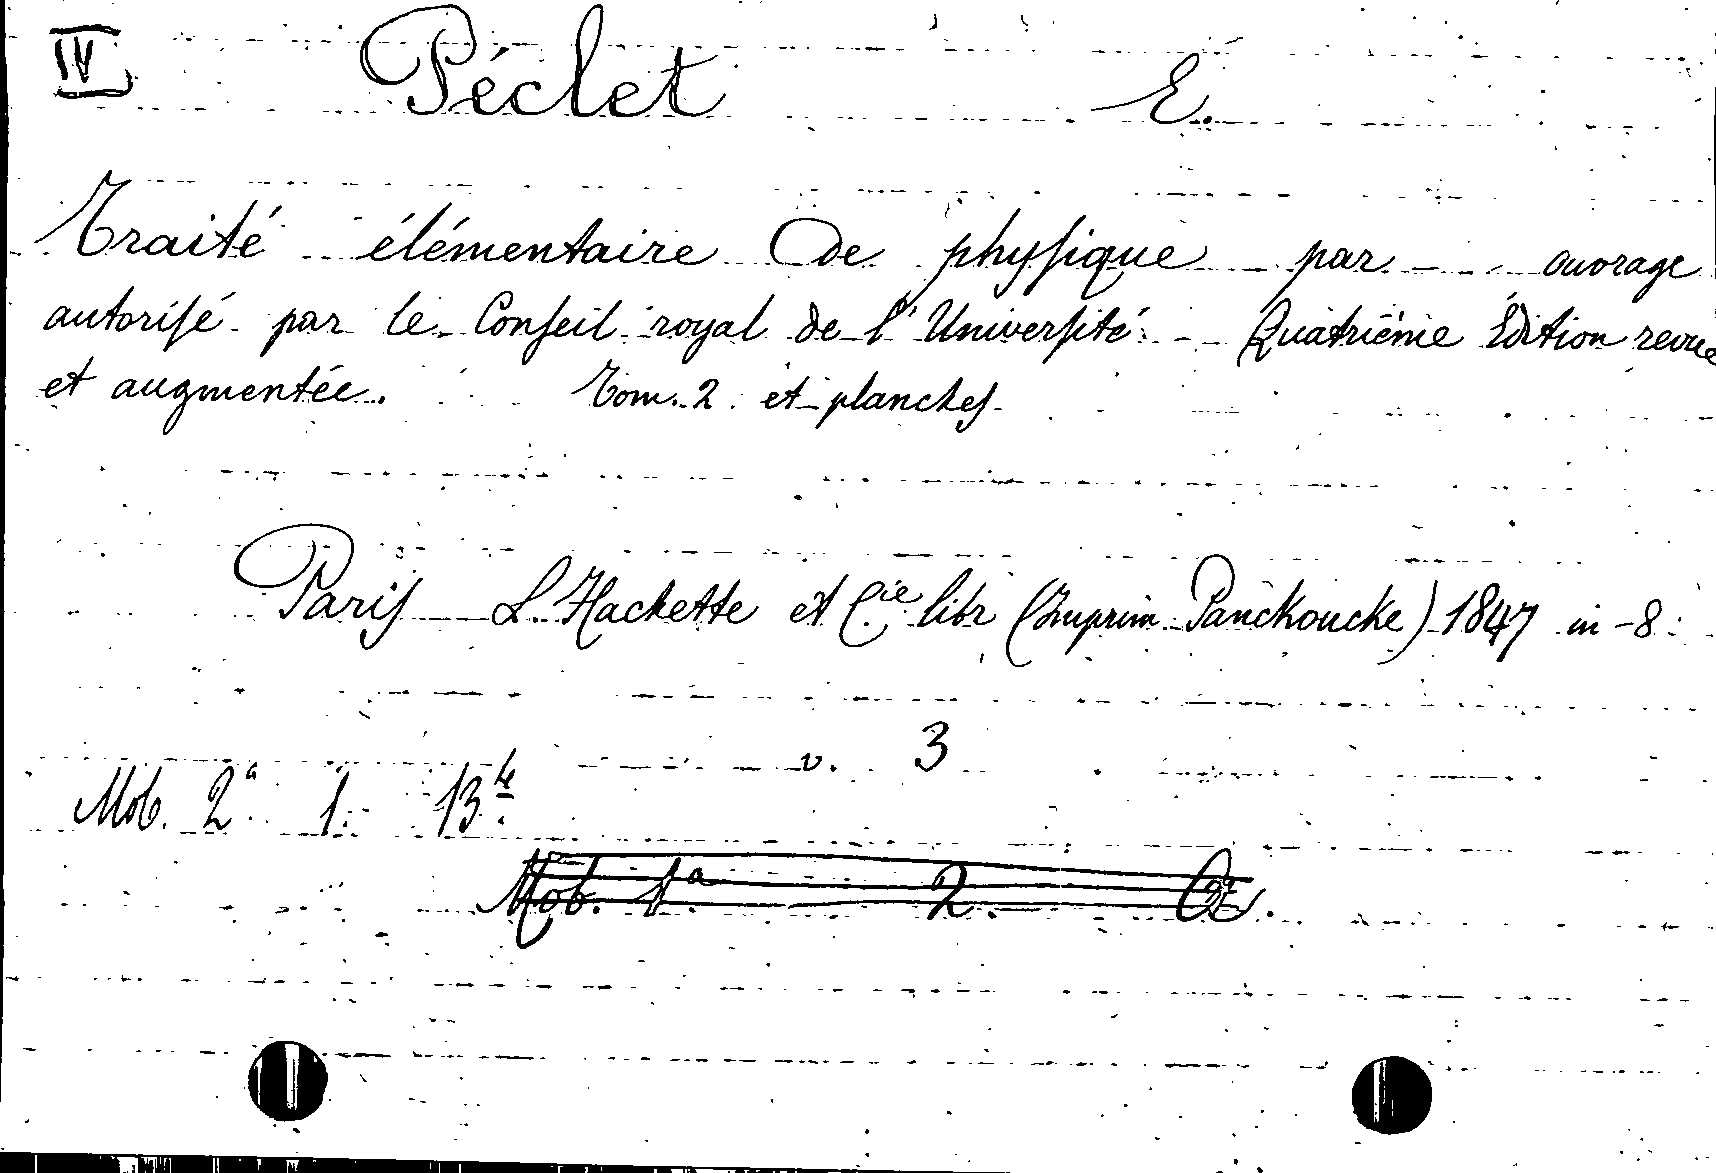 IV Péclet E.
Traité élémentaire de phyſique par - ouvrage
autoriſé par le Conſeil royal de l'Univerſité. - Quatriéme Édition revue
et augmentée. Tom. 2 et planches
Paris L. Hachette et Cie libr (Imprim Panckoucke) 1847 in-8
v. 3
Mob. 2a 1. 13
Mob. 1a 2.